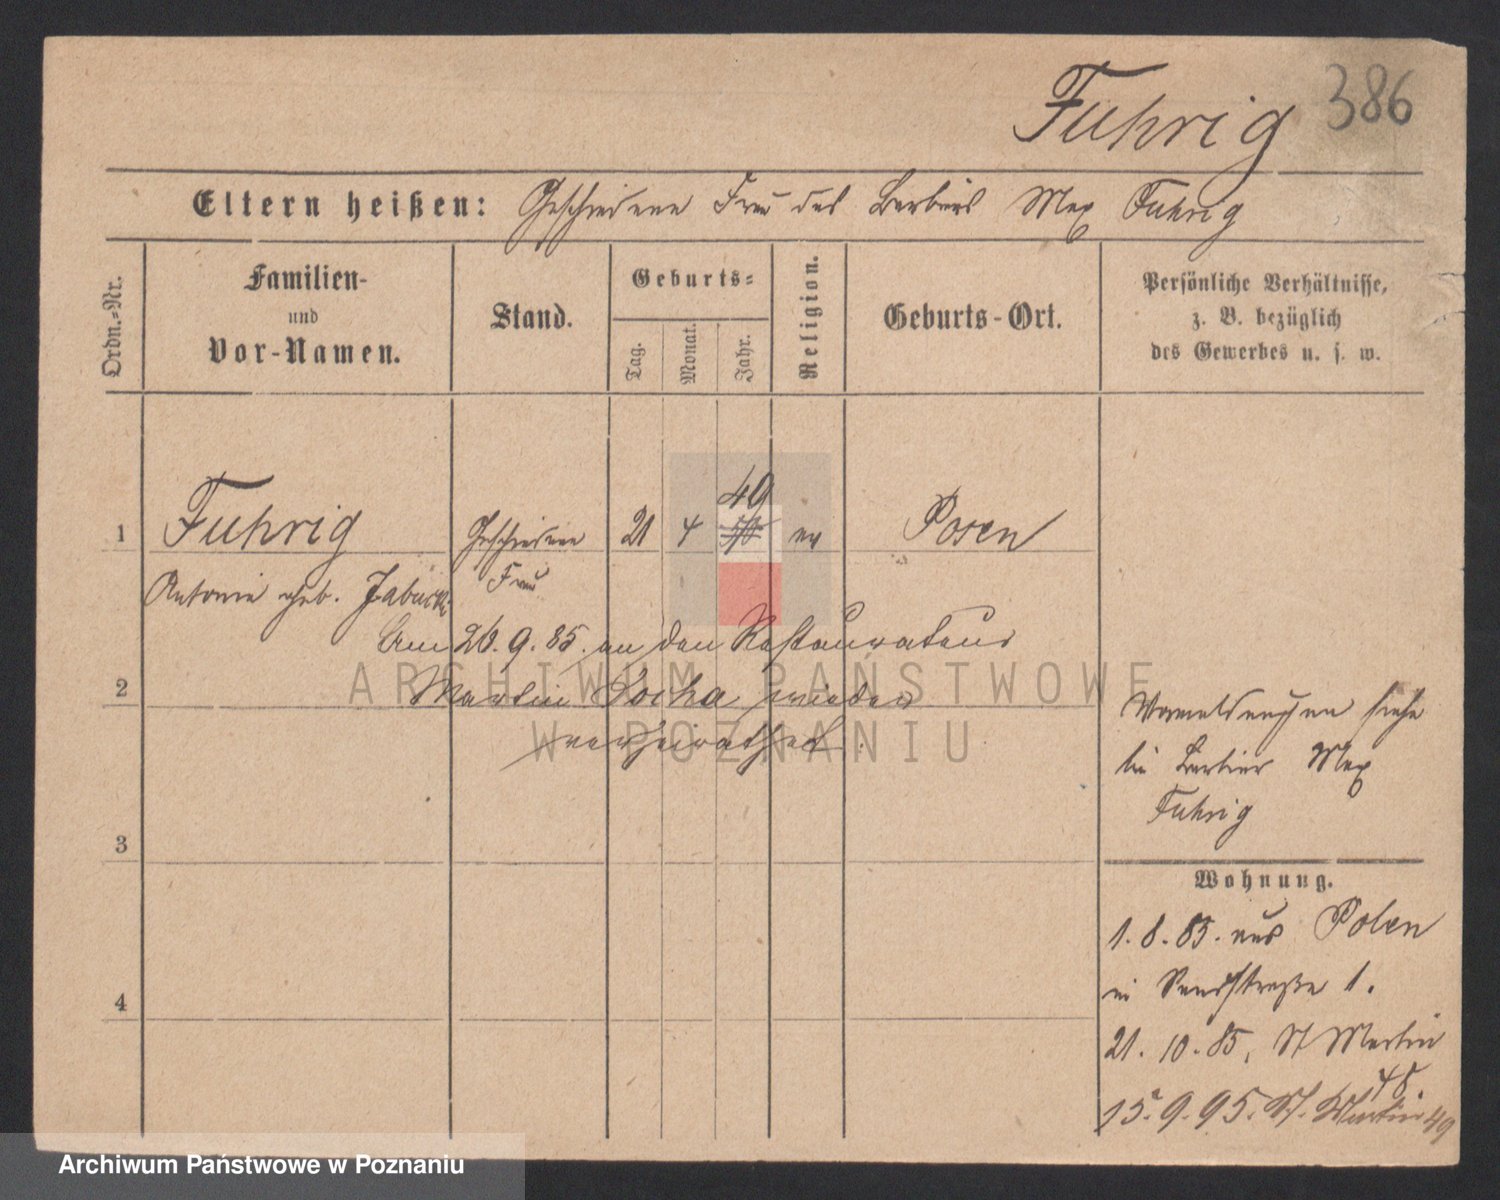 Fuhrig 386
Eltern heißen: Geschiedene Frau des Barbiers Max Fuhrig
Ordn.-Nr.
Familien-
und
Vor-Namen.
Stand.
Geburts-
Tag.
Monat.
Jahr.
Religion.
Geburts-Ort.
Persönliche Verhältnisse,
z. B. bezüglich
des Gewerbes u. s. w.
49
1 Fuhrig Geschiedene 21 4 ev Posen
Antonie geb. Frau
Am 26.9.85. an den Restaurateur
2 Martin Socha wieder
verheirathet.
Vormeldungen siehe
bei Barbier Max
Fuhrig
3
Wohnung.
1.8.85. aus Polen
in Sandstraße 1.
4
21.10.85, St Martin
48.
15.9.95. St. Martin 49
ARCHIWUM PAŃSTWOWE
W POZNANIU
Archiwum Państwowe w Poznaniu